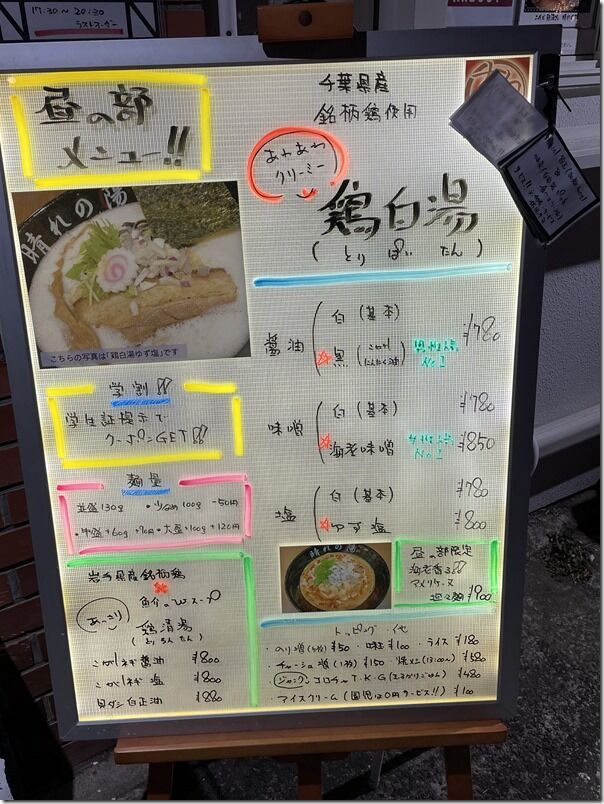 17:30~20:30
ラストオーダー
昼の部
メニュー!!
千葉県産
銘柄鶏使用
あわあわ
クリーミー
鶏白湯
(とりぱいたん)
晴れの陽
こちらの写真は「鶏白湯ゆず塩」です
醤油
白(基本)
黒(こがしにんにく油)
¥780
男性人気
No.1
味噌
白(基本) ¥780
海老味噌
女性人気
No.1
¥850
塩
白(基本) ¥780
ゆず塩 ¥800
学割!!
学生証提示で
クーポンGET!!
麺量
並盛130g ・少なめ100g -50円
・中盛+60g +70円 ・大盛+100g +120円
岩手県産銘柄鶏
魚介のWスープ
あっさり
鶏清湯
(とりちんたん)
こがしネギ醤油 ¥800
こがしネギ塩 ¥800
貝ダシ白正油 ¥880
晴れの陽
昼の部限定
海老香る!!
担々麺 ¥900
トッピング 他
・のり増(4枚) ¥50 ・味玉 ¥100 ・ライス ¥180
・チャーシュー増(1枚) ¥150
¥580
T・K・G(たまかけごはん) ¥480
・アイスクリーム(園児は0円サービス!!) ¥100